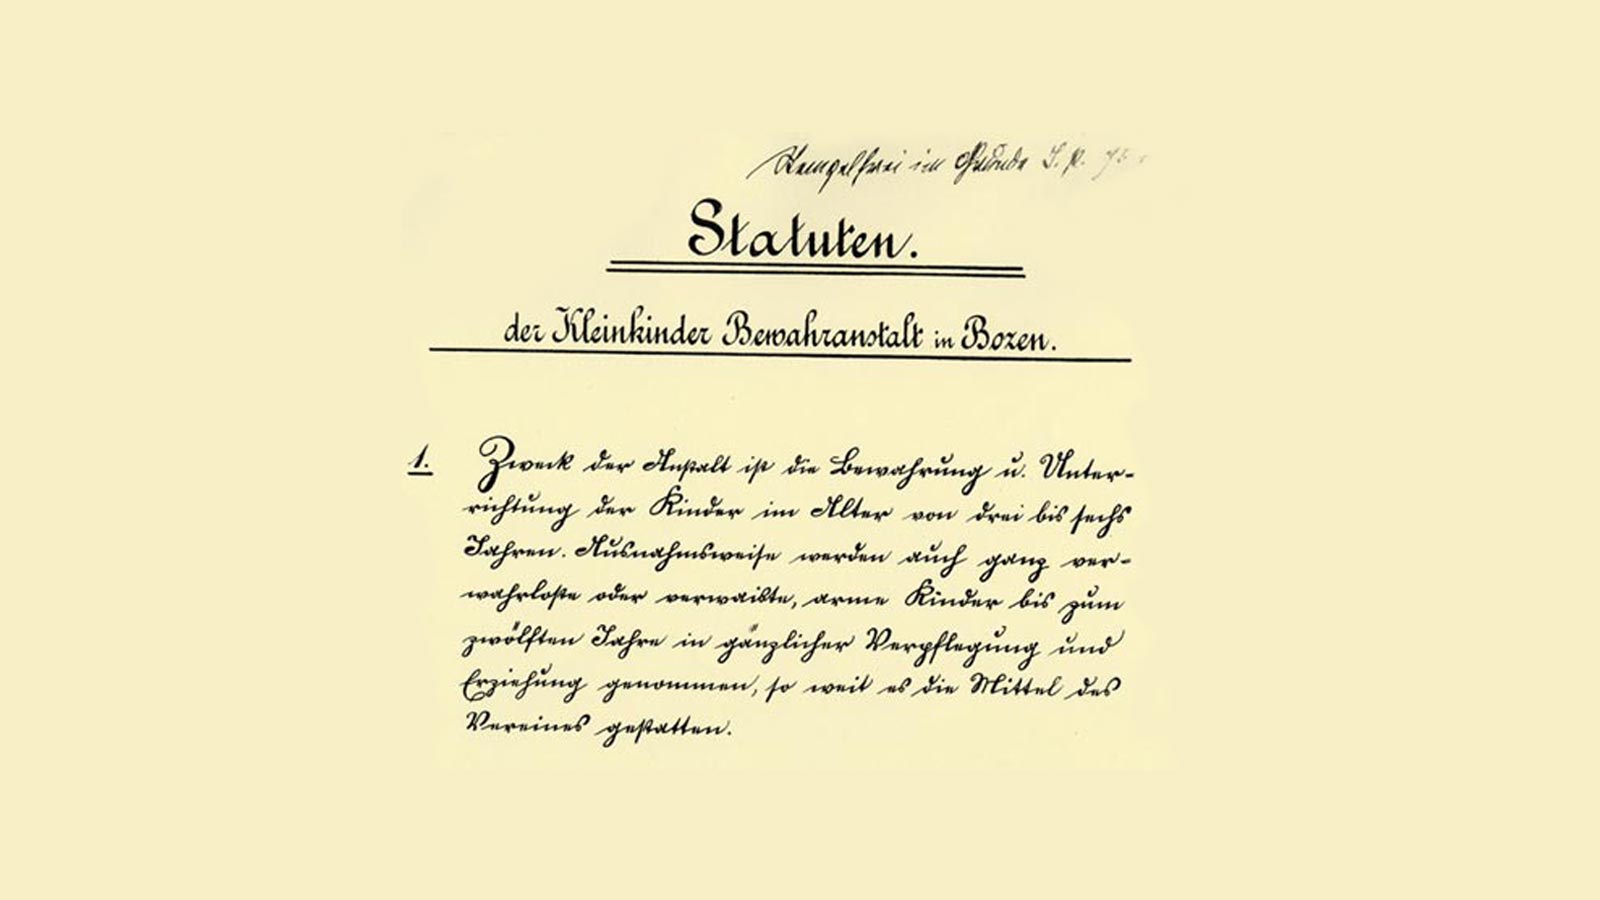 Stempelfrei im Grunde T. P. 75
Statuten.
der Kleinkinder Bewahranstalt in Bozen.
1. Zweck der Anstalt ist die Bewahrung u. Unter-
richtung der Kinder im Alter von drei bis sechs
Jahren. Ausnahmsweise werden auch ganz ver-
wahrloste oder verwaiste, arme Kinder bis zum
zwölften Jahre in gänzlicher Verpflegung und
Erziehung genommen, so weit es die Mittel des
Vereines gestatten.